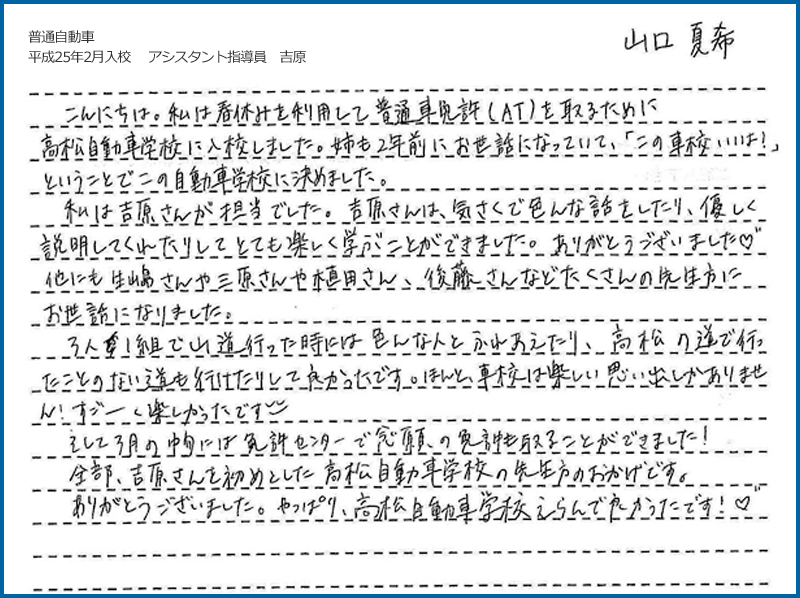 普通自動車
平成25年2月入校　アシスタント指導員　吉原
山口 夏希
こんにちは。私は春休みを利用して普通車免許(AT)を取るために
高松自動車学校に入校しました。姉も2年前にお世話になっていて、「この車校いいよ!」
ということでこの自動車学校に決めました。
私は吉原さんが担当でした。吉原さんは、気さくで色んな話をしたり、優しく
説明してくれたりしてとても楽しく学ぶことができました。ありがとうございました♡
他にも生嶋さんや三原さんや植田さん、後藤さんなどたくさんの先生方に
お世話になりました。
3人1組で山道行った時には色んな人とふれあえたり、高松の道で行っ
たことのない道も行けたりして良かったです。ほんと、車校は楽しい思い出しかありませ
ん!すごーく楽しかったです
そして3月の中旬には免許センターで念願の免許も取ることができました!
全部、吉原さんを初めとした高松自動車学校の先生方のおかげです。
ありがとうございました。やっぱり、高松自動車学校えらんで良かったです!♡